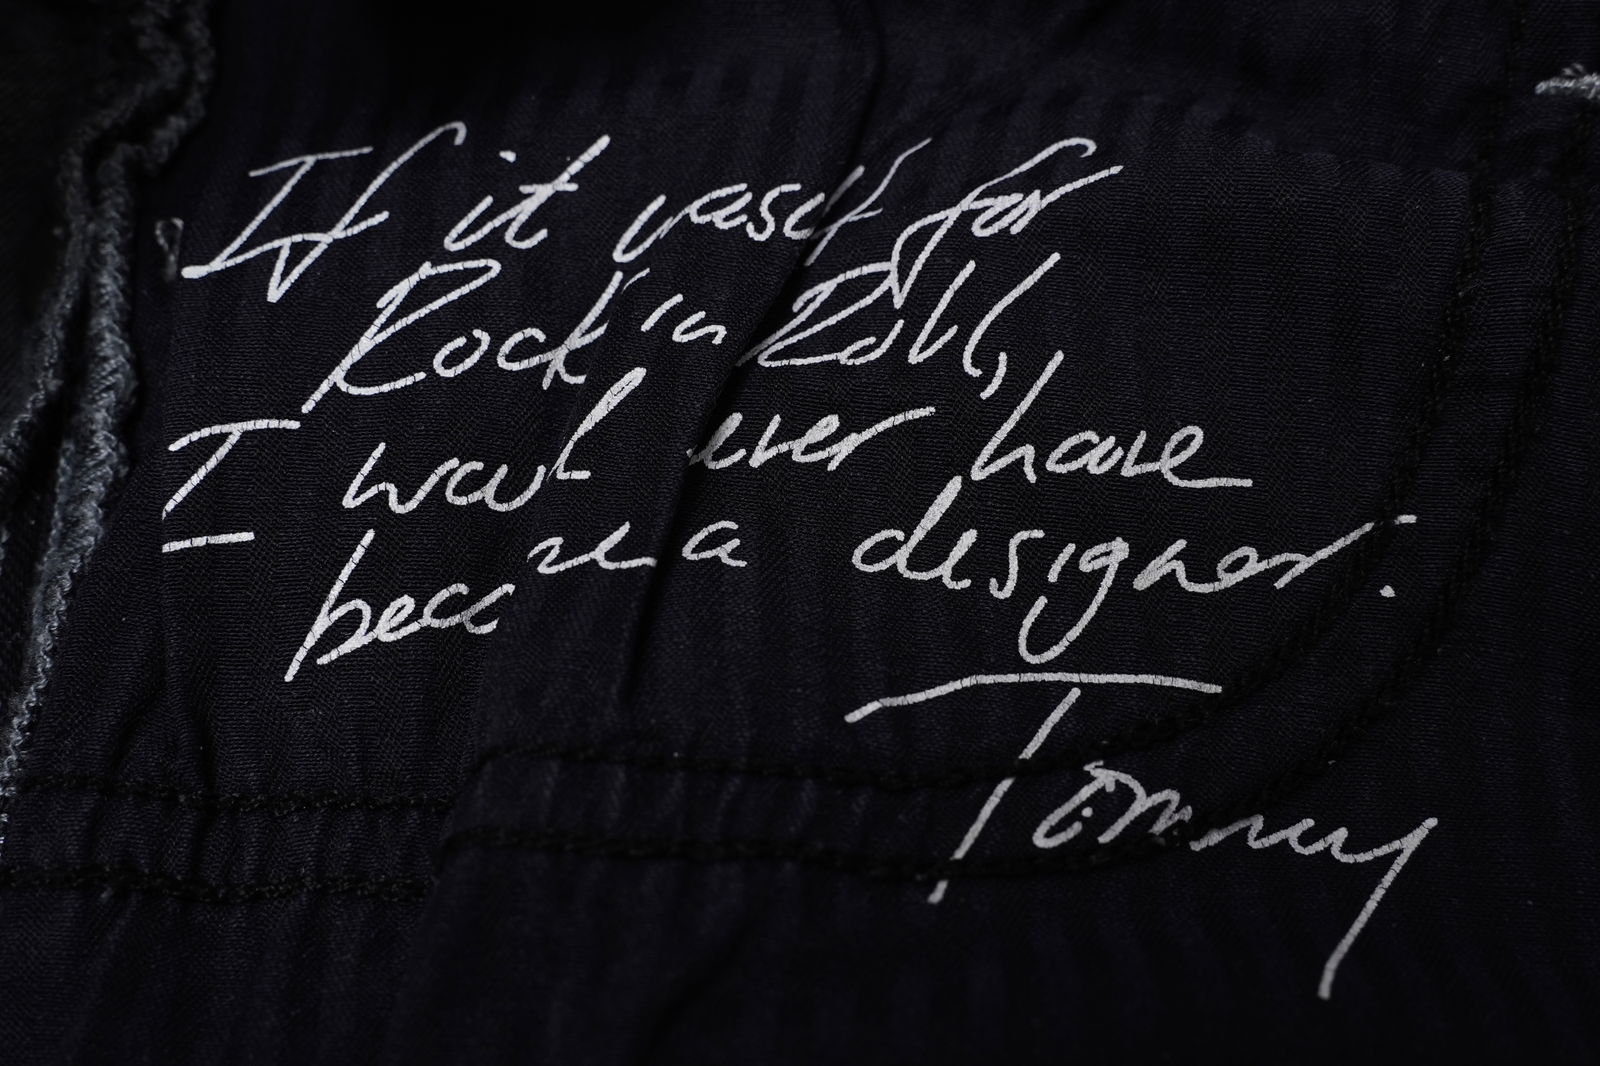 If it wasn't for
Rock'n Roll,
I would never have
became a designer.
Tommy